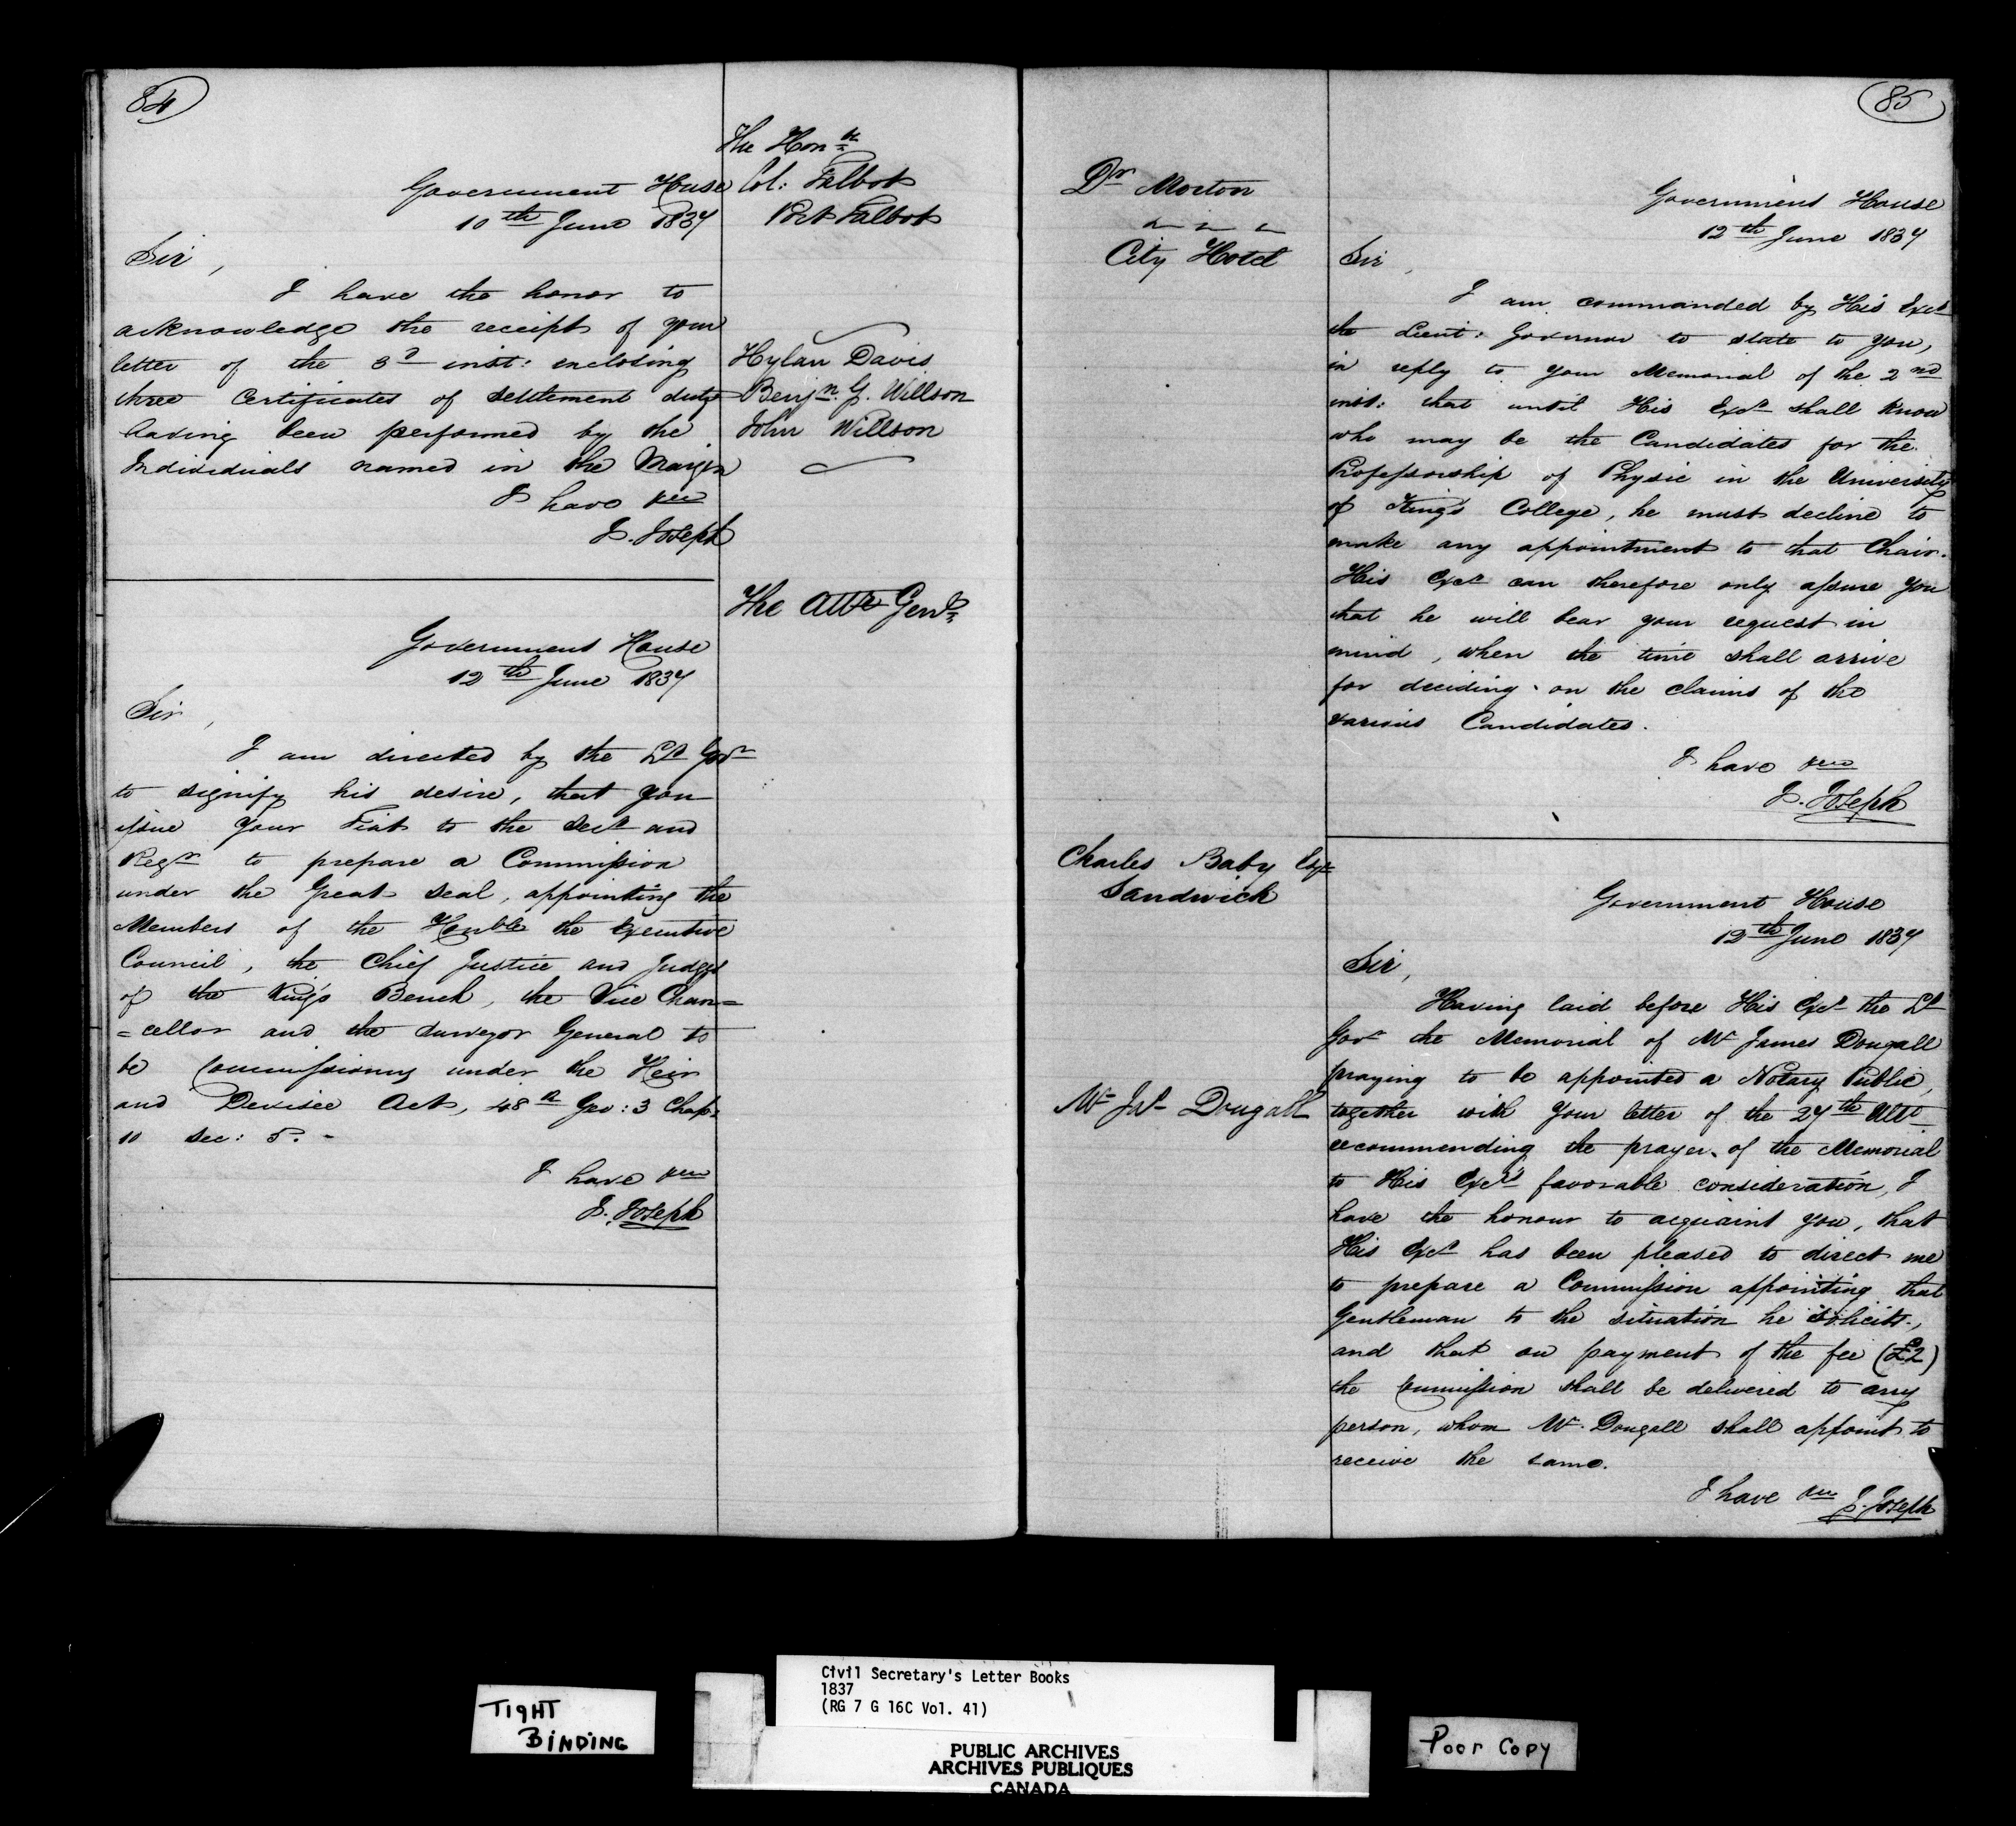 84
The Honble
Col: Talbot
Port Talbot
Government House
10th June 1837
Sir,
I have the honor to
acknowledge the receipt of your
letter of the 3d inst: enclosing
three Certificates of settlement duty
having been performed by the
Individuals named in the Margin
Hylau Davis
Benjn. G. Willson
John Willson
I have &c
J. Joseph
The Atty Genl.
Government House
12th June 1837
Sir,
I am directed by the Lt Govr
to signify his desire, that you
issue your Fiat to the Secy and
Regr to prepare a Commission
under the Great Seal, appointing the
Members of the Honble the Executive
Council, the Chief Justice and Judges
of the King's Bench, the Vice Chan=
=cellor and the Surveyor General to
be Commissioners under the Heir
and Devisee Act, 48th Geo: 3 Chap:
10 sec: 5. -
I have &c
J. Joseph
85
Dr Morton
City Hotel
Government House
12th June 1837
Sir,
I am commanded by His Excy
the Lieut: Governor to state to you,
in reply to your Memorial of the 2nd
inst: that until His Excy shall know
who may be the Candidates for the
Professorship of Physic in the University
of King's College, he must decline to
make any appointment to that Chair.
His Excy can therefore only assure you
that he will bear your request in
mind, when the time shall arrive
for deciding on the claims of the
various Candidates.
I have &c
J. Joseph
Charles Baby Esqr
Sandwich
Government House
12th June 1837
Sir,
Having laid before His Excy the Lt
Govr the Memorial of Mr James Dougall
praying to be appointed a Notary Public,
Mr Jas Dougall
together with your letter of the 27th Ulto
recommending the prayer of the Memorial
to His Excy's favorable consideration, I
have the honour to acquaint you, that
His Excy has been pleased to direct me
to prepare a Commission appointing that
Gentleman to the situation he solicits,
and that on payment of the fee (£2)
the Commission shall be delivered to any
person, whom Mr. Dougall shall appoint to
receive the same.
I have &c J. Joseph
TIGHT
BINDING
Civil Secretary's Letter Books
1837
(RG 7 G 16C Vol. 41)
PUBLIC ARCHIVES
ARCHIVES PUBLIQUES
CANADA
Poor Copy